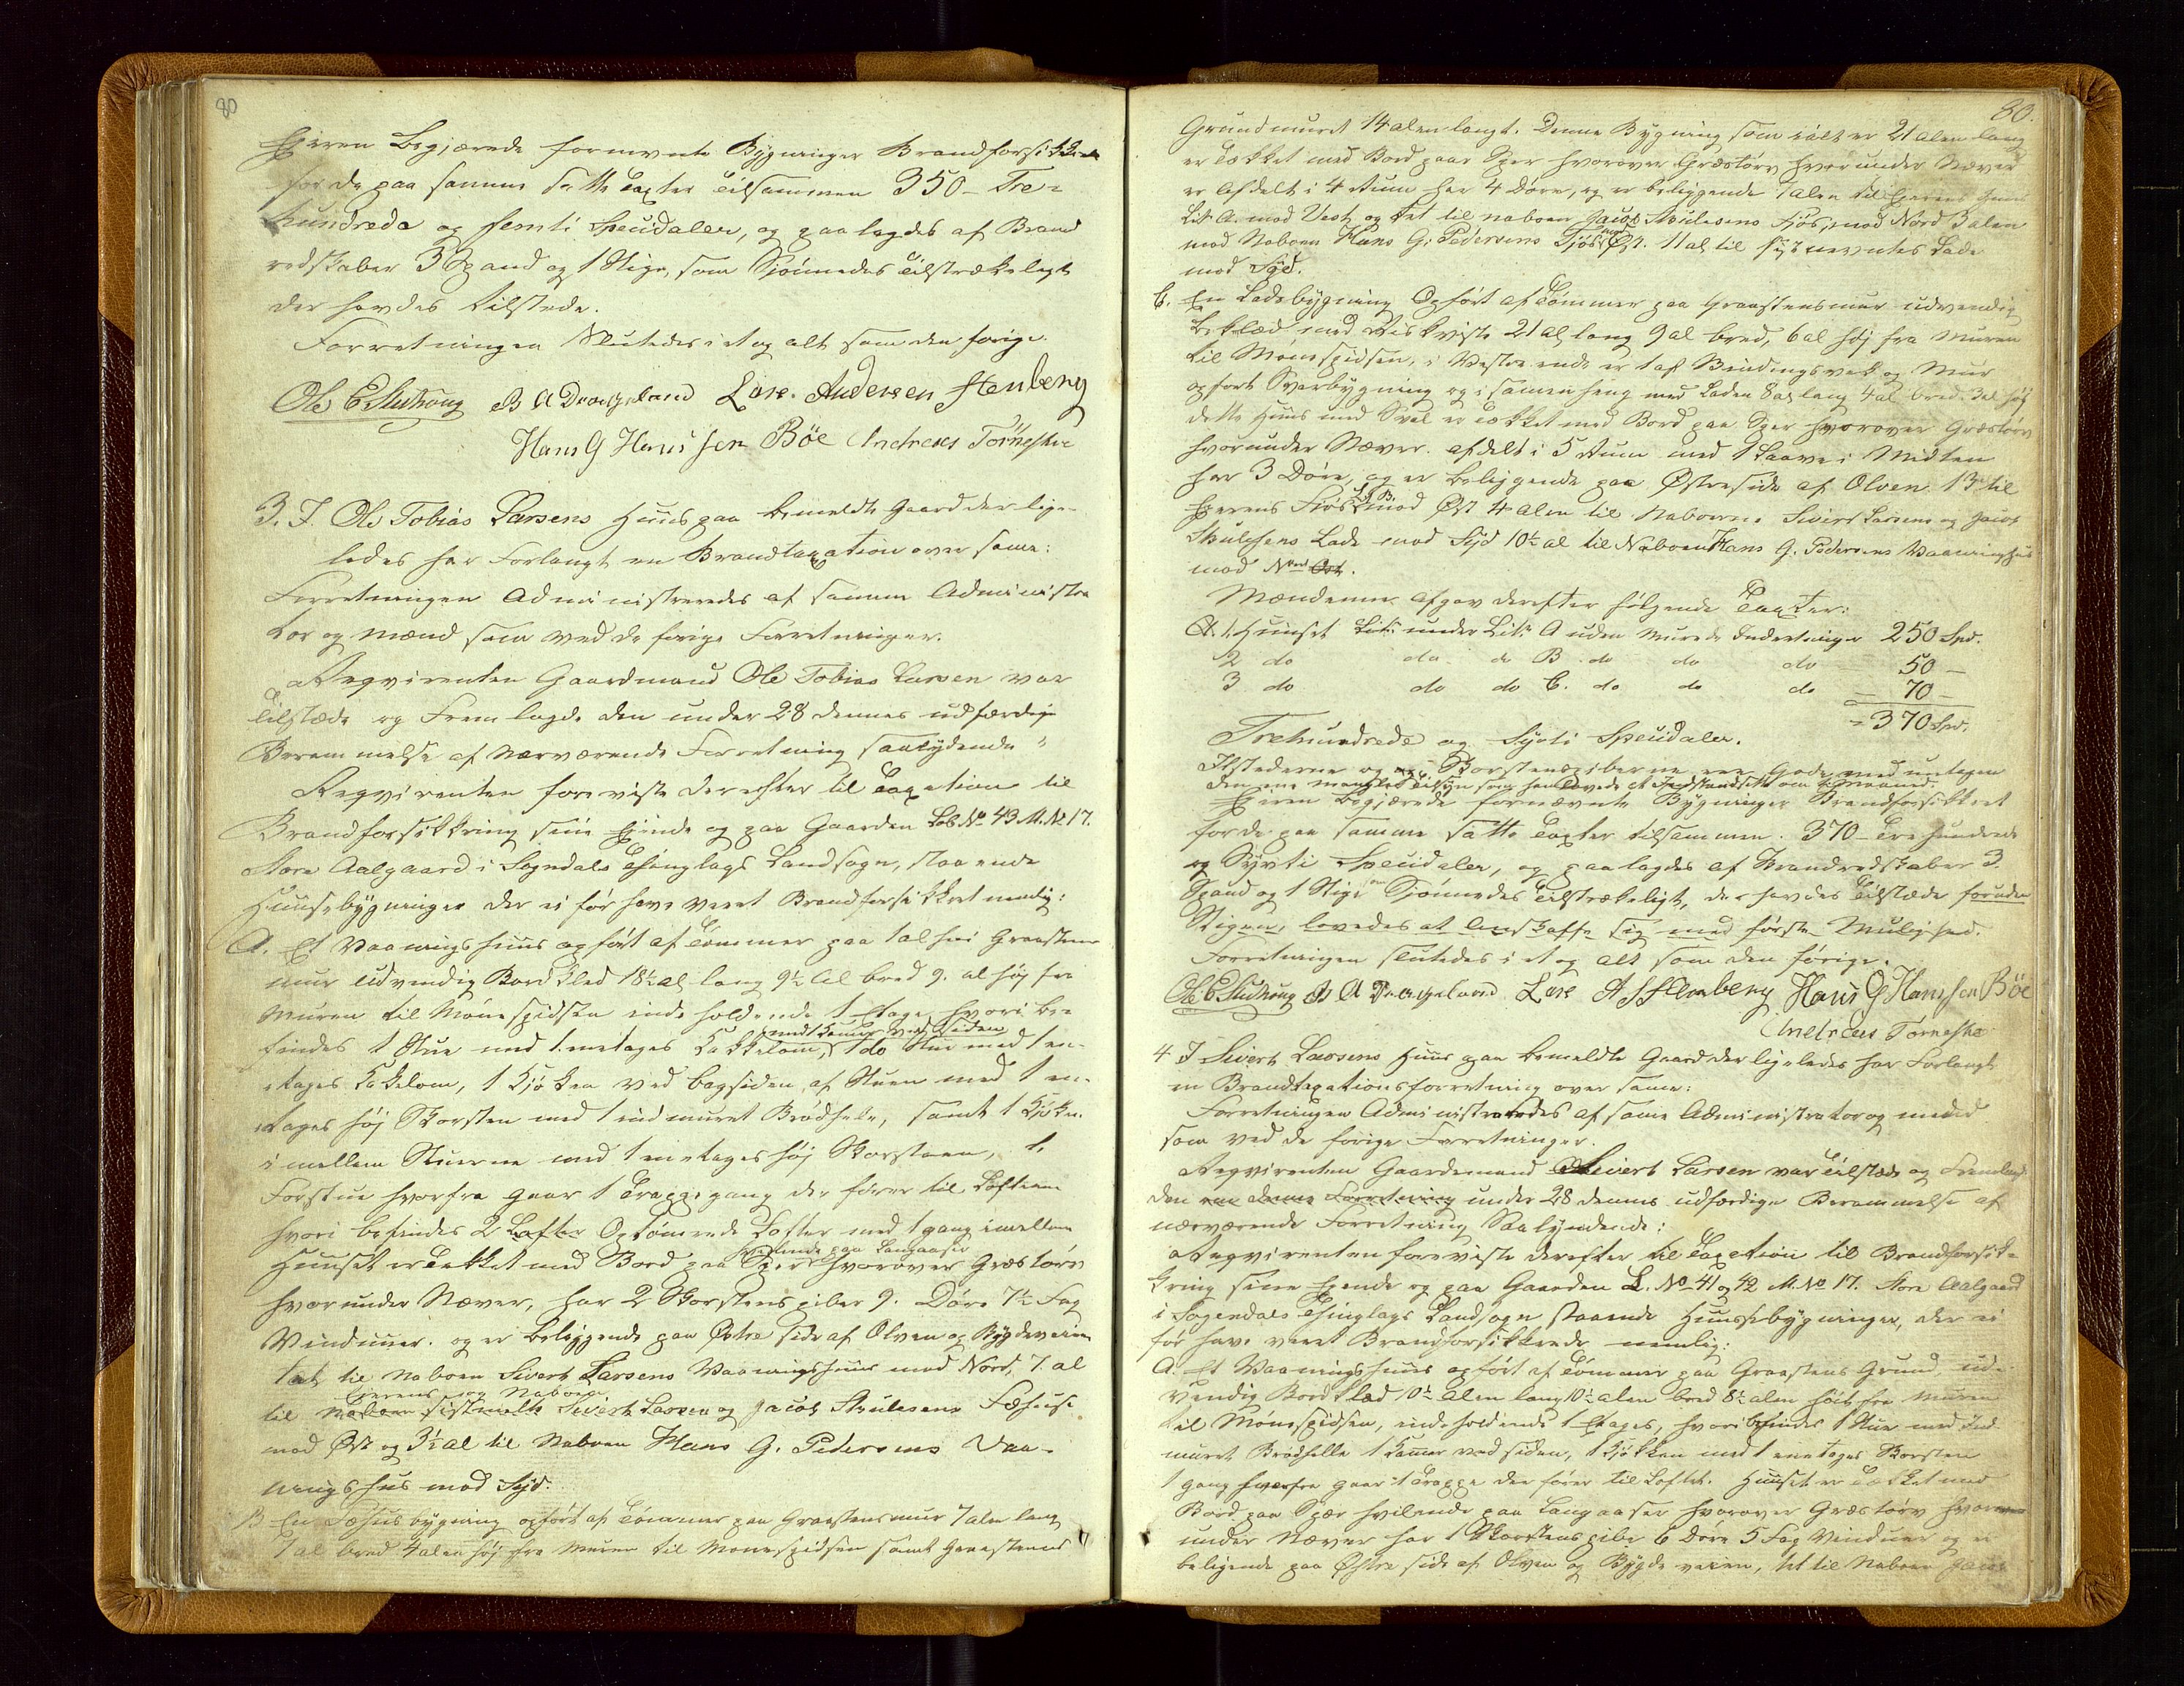 80
Eieren begjærede fornevnte Bygninger Brandforsikkret
for de paa samme satte Taxter tilsammen 350 - Tre-
hundrede og femti Speciedaler, og paalagdes af Brand
redskaber 3 Spand og 1 Stige, som Skjønnedes tilstrækeligt
der havdes tilstede.
Forretningen Sluttedes i et og alt som den forige.
Ole E B A Drangeland Lars. Andersen Stenberg
Hans G Hanssen Böe Andreas Törneskre
3. I. Ole Tobias Larsens Huus paa bemeldte Gaard der lige-
ledes har Forlangt en Brandtaxation over same:
Forretningen Administreredes af samme Administra
tor og Mænd som ved de forige Forretninger.
Reqvirenten Gaardmand Ole Tobias Larsen var
tilstæde og Fremlagde den under 28 dennes udfærdige
Berammelse af nærværende Forretning saalydende:
Reqvirenten foreviste derefter til Taxation til
Brandforsikkring sine Eiende og paa Gaarden Løb No 43 M. No 17.
Store Aalgaard i Sogndals Thinglags Landsogn, staaende
Huusebygninger der ei før have veret Brandforsikkret nemlig:
A. Et Vaaningshuus opført af Tømmer paa 1 al høi Graasteens
mur udvendig Bordklæd 18½ al lang 9½ al bred 9. al høj fra
Muren til Mønespidsen indeholdende 1 Etage hvori be-
med 1 Kamer ved Siden
findes 1 Stue med 1 enetages Kakkelovn, 1 do Stue med 1 en-
etages Kakelovn, 1 Kjøken ved bagsiden af Stuen med 1 en-
etages høj Skorsten med 1 indmuret Brødhelle, samt 1 Kjøken
imellem Stuerne med 1 enetages høj Skorsteen, 1.
Forstue hvorfra gaar 1 Trappegang der fører til Lofterne
hvori befindes 2 Lofter Optømrede Lofter med 1 gang imellem
hvilende paa Langaaser
Huuset er Tækket med Bord paa Sper hvorover Græstørv
hvorunder Næver, har 2 Skorstenspiber 9. Døre 7½ Fag
Vinduer. og er beliggende paa Østre side af Elven og Bygdeveien
tæt til Naboen Sivert Larsens Vaaningshuus mod Nord, 7. al
Eierens og Naboen
til Naboen sistmelte Sivert Larsen og Jacob Skulesens Fæhuse
mod Øst og 3½ al til Naboen Hans G. Pedersens Vaa-
ningshus mod Syd.
B En Fæhusbygning opført af Tømmer paa Graastensmur 7 alen lang
7 al bred 4 alen høj fra Muren til Mønespidsen samt Graasteens
80.
Grundmuret 14 alen langt. Denne Bygning som i alt er 21 alen lang
er Tækket med Bord paa Sper hvorover Græstørv hvorunder Næver
er Afdelt i 4 Rum har 4 Døre, og er beliggende 7 alen til Eierens Huus
Lit A. mod Vest og tæt til naboen Jacob Skulesens Fjøs, mod Nord 3 alen
mod Naboen Hans G. Pedersens Fjøs mod Øst. 11 al til sist nevntes Lade
mod Syd.
C. En Ladebygning Opført af Tømmer paa Graastensmur udvendig
beklæd med Riskviste 21 al lang 9 al bred, 6 al høj fra Muren
til Mønespidsen, i Vestre ende er 1 af Bindingsverk og Mur
opført Sverbygning og i sammenheng med Laden 8 al lang 4 al bred 3 al høj
dette Huus med Sval er tækket med Bord paa Sper hvorover Græstørv
hvorunder Næver. afdelt i 5 Rum med 1 Laave i Midten
har 3 Døre, og er beliggende paa Østreside af Elven 13 al til
Lit B.
Eierens Fjøs mod Øst 4 alen til Naboerne Sivert Larsens og Jacob
Skulesens Lade mod Syd 10½ al til Naboen Hans G. Pedersens Vaaningshus
mod Nord Øst.
Mændenne Afgav derefter følgende Taxter:
A. 1. Huuset Lit: under Lit: A uden Murede Indretninger 250 Spd.
2 do do do B. do do do 50 -
3 do do do C. do do do - 70 -
= 370 Spd.
Trehundrede og Syvti Speciedaler.
Ildstederne og Skorstenspiberne var Gode med undtagen
den ene manglet som han lovede at Istandsette om 1 Maaned.
Eieren begjærede fornævnte Bygninger Brandforsikkret
for de paa samme satte Taxter tilsammen. 370 - Trehundrede
og Syvti Speciedaler, og paalagdes af Brandredskaber 3.
Spand og 1 Stige som Skjønnedes tilstrækeligt, der havdes tilstæde foruden
Stigen, lovedes at Anskaffe sig med første Mulighed.
Forretningen sluttedes i et og alt som den forige.
Ole E B A Drangeland Lars A Stenberg Hans G Hanssen Böe
Andreas Törneskre
4 I Sivert Larsens Huus paa bemeldte Gaard der ligeledes har Forlangt
en Brandtaxationsforretning over same:
Forretningen Administreredes af same Administrator og mænd
som ved de forige Forretninger.
Reqvirenten Gaardemand Sivert Larsen var tilstæde og Fremlagde
den om denne Forretning under 28 dennes udfærdige Berammelse af
nærværende Forretning Saalydende:
Reqvirenten foreviste derefter til Taxation til Brandforsik-
kring sine Eiende og paa Gaarden L. No 41 og 42 M. No 17. Store Aalgaard
i Sogndals Thinglags Landsogn, staaende Huusebygninger, der ei
før have veret Brandforsikkrede nemlig:
A. Et Vaaningshuus opført af Tømmer paa Graasteens Grund, ud-
vendig Bordklæd 10½ alen lang 10½ alen bred 8½ alen høit fra Muren
til Mønespidsen, indeholdende 1 Etages, hvori befindes 1 Stue med Ind-
muret Brødhelle 1 Kamer ved siden, 1 Kjøkken med 1 enetages Skorsten
1 gang hvorfra gaar 1 Trappe der fører til Loftet. Huuset er Tækket med
Bord paa Sper hvilende paa Langaaser hvorover Græstørv hvor
under Næver har 1 Skorstenspibe 6 Døre 5 Fag Vinduer og er
beliggende paa Østre side af Elven og Bygdeveien, tæt til Naboen Jacob